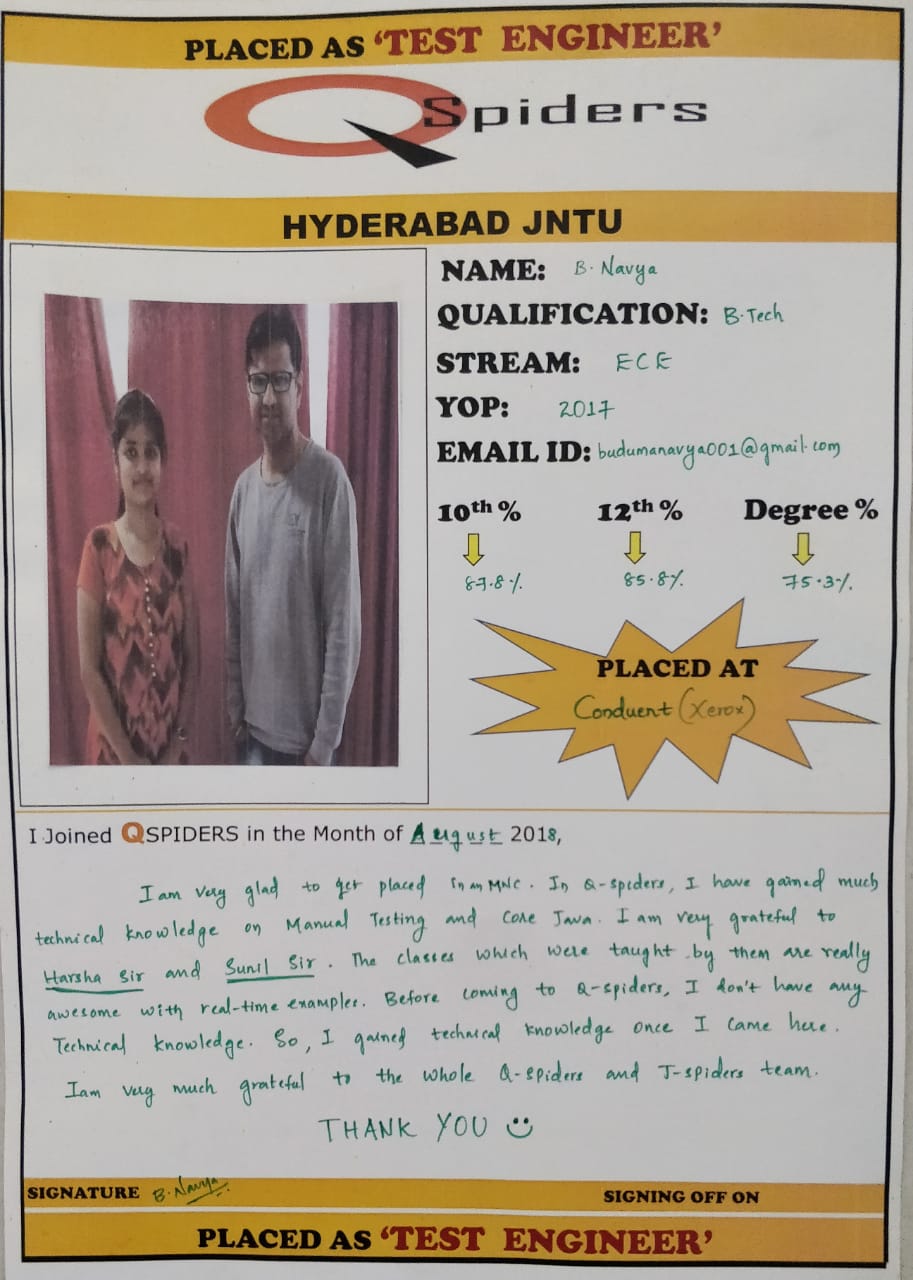 PLACED AS 'TEST ENGINEER'
QSpiders
HYDERABAD JNTU
NAME: B. Navya
QUALIFICATION: B.Tech
STREAM: ECE
YOP: 2017
EMAIL ID: budumanavya001@gmail.com
10th % 12th % Degree %
87.8% 85.8% 75.3%
PLACED AT
Conduent (Xerox)
I Joined QSPIDERS in the Month of August 2018,
I am very glad to get placed in an MNC. In Q-spiders, I have gained much
technical knowledge on Manual Testing and Core Java. I am very grateful to
Harsha Sir and Sunil Sir. The classes which were taught by them are really
awesome with real-time examples. Before coming to Q-spiders, I don't have any
Technical knowledge. So, I gained technical knowledge once I came here.
I am very much grateful to the whole Q-spiders and J-spiders team.
THANK YOU
SIGNATURE B. Navya SIGNING OFF ON
PLACED AS 'TEST ENGINEER'